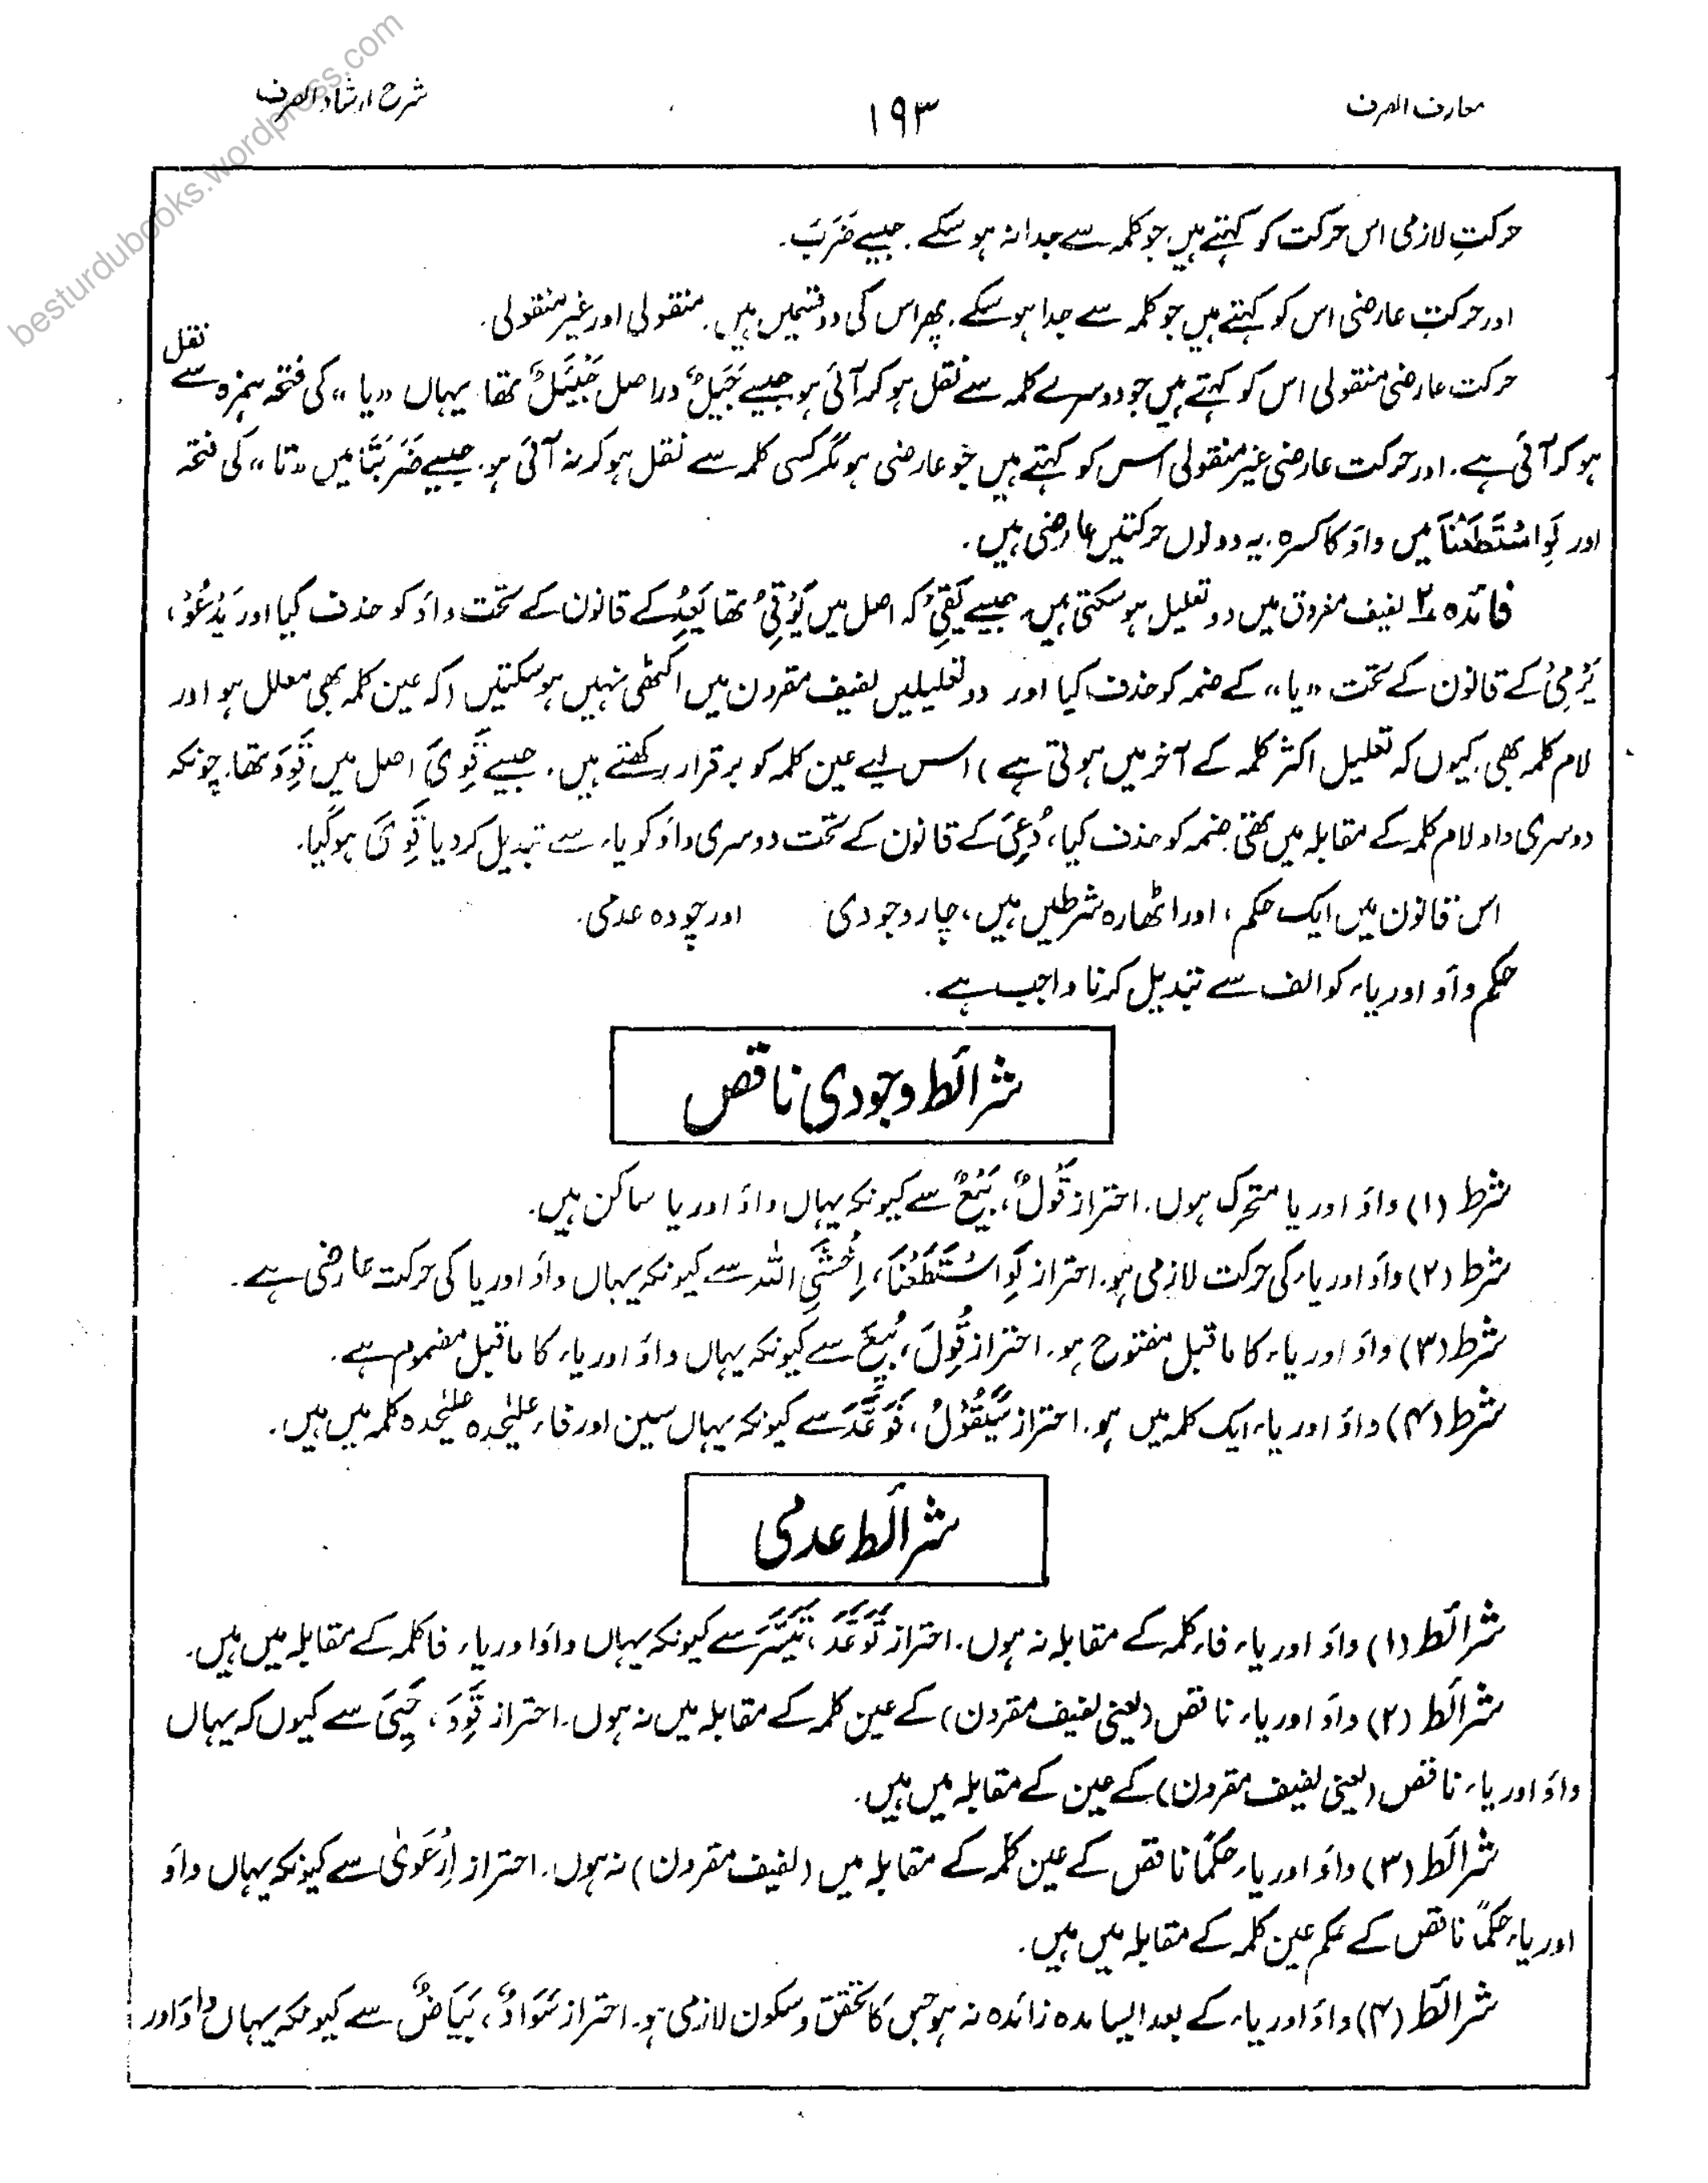 معارف الصرف
۱۹۳
شرح ارشاد الصرف
besturdubooks.wordpress.com
حرکتِ لازمی اس حرکت کو کہتے ہیں جو کلمہ سے جدا نہ ہو سکے۔ جیسے ضَرَبَ۔
اور حرکتِ عارضی اس کو کہتے ہیں جو کلمہ سے جدا ہو سکے۔ پھر اس کی دو قسمیں ہیں۔ منقولی اور غیر منقولی۔
حرکت عارضی منقولی اس کو کہتے ہیں جو دوسرے کلمہ سے نقل ہو کر آئی ہو جیسے جَیَلٌ دراصل جَیْئَلٌ تھا یہاں «یا» کی فتحہ ہمزہ سے نقل
ہو کر آئی ہے۔ اور حرکت عارضی غیر منقولی اس کو کہتے ہیں جو عارضی ہو مگر کسی کلمہ سے نقل ہو کر نہ آئی ہو۔ جیسے ضَرَبَتَا میں «تا» کی فتحہ
اور لَوِ اسْتَطَعْنَا میں واؤ کا کسرہ۔ یہ دونوں حرکتیں عارضی ہیں۔
فائدہ ۲ لفیف مفروق میں دو تعلیل ہو سکتی ہیں۔ جیسے یَقِیْ کہ اصل میں یَوْقِیُ تھا یَعِدُ کے قانون کے تحت واؤ کو حذف کیا اور یَدْعُوْ،
یَرْمِیْ کے قانون کے تحت «یا» کے ضمہ کو حذف کیا اور دو تعلیلیں لفیف مقرون میں اکٹھی نہیں ہو سکتیں (کہ عین کلمہ بھی معلل ہو اور
لام کلمہ بھی کیوں کہ تعلیل اکثر کلمہ کے آخر میں ہوتی ہے) اس لیے عین کلمہ کو برقرار رکھتے ہیں۔ جیسے قَوِیَ اصل میں قَوِوَ تھا۔ چونکہ
دوسری واو لام کلمہ کے مقابلہ میں تھی ضمہ کو حذف کیا، دُعِیَ کے قانون کے تحت دوسری واؤ کو یاء سے تبدیل کر دیا قَوِیَ ہو گیا۔
اس قانون میں ایک حکم، اور اٹھارہ شرطیں ہیں، چار وجودی اور چودہ عدمی۔
حکم واؤ اور یاء کو الف سے تبدیل کرنا واجب ہے۔
شرائط وجودی ناقص
شرط (۱) واؤ اور یا متحرک ہوں۔ احتراز قَوْلٌ، بَیْعٌ سے کیونکہ یہاں واؤ اور یا ساکن ہیں۔
شرط (۲) واؤ اور یاء کی حرکت لازمی ہو۔ احتراز لَوِ اسْتَطَعْنَا، اِخْشَیِ اللہ سے کیونکہ یہاں واؤ اور یا کی حرکت عارضی ہے۔
شرط (۳) واؤ اور یاء کا ماقبل مفتوح ہو۔ احتراز قُوِلَ، بُیِعَ سے کیونکہ یہاں واؤ اور یاء کا ماقبل مضموم ہے۔
شرط (۴) واؤ اور یاء ایک کلمہ میں ہو۔ احتراز سَیَقُوْلُ، فَوَعَّدَ سے کیونکہ یہاں سین اور فاء علیٰحدہ علیٰحدہ کلمہ میں ہیں۔
شرائط عدمی
شرائط (۱) واؤ اور یاء فاء کلمہ کے مقابلہ نہ ہوں۔ احتراز تَوَعَّدَ، تَیَسَّرَ سے کیونکہ یہاں واؤ اور یاء فا کلمہ کے مقابلہ میں ہیں۔
شرائط (۲) واؤ اور یاء ناقص (یعنی لفیف مقرون) کے عین کلمہ کے مقابلہ میں نہ ہوں۔ احتراز قَوِوَ، حَیِیَ سے کیوں کہ یہاں
واؤ اور یاء ناقص (یعنی لفیف مقرون) کے عین کے مقابلہ میں ہیں۔
شرائط (۳) واؤ اور یاء حکمًا ناقص کے عین کلمہ کے مقابلہ میں (لفیف مقرون) نہ ہوں۔ احتراز اِرْعَوٰی سے کیونکہ یہاں واؤ
اور یاء حکمًا ناقص کے عکم عین کلمہ کے مقابلہ میں ہیں۔
شرائط (۴) واؤ اور یاء کے بعد ایسا مدہ زائدہ نہ ہو جس کا تحقق و سکون لازمی ہو۔ احتراز سَوَادٌ، بَیَاضٌ سے کیونکہ یہاں واؤ اور